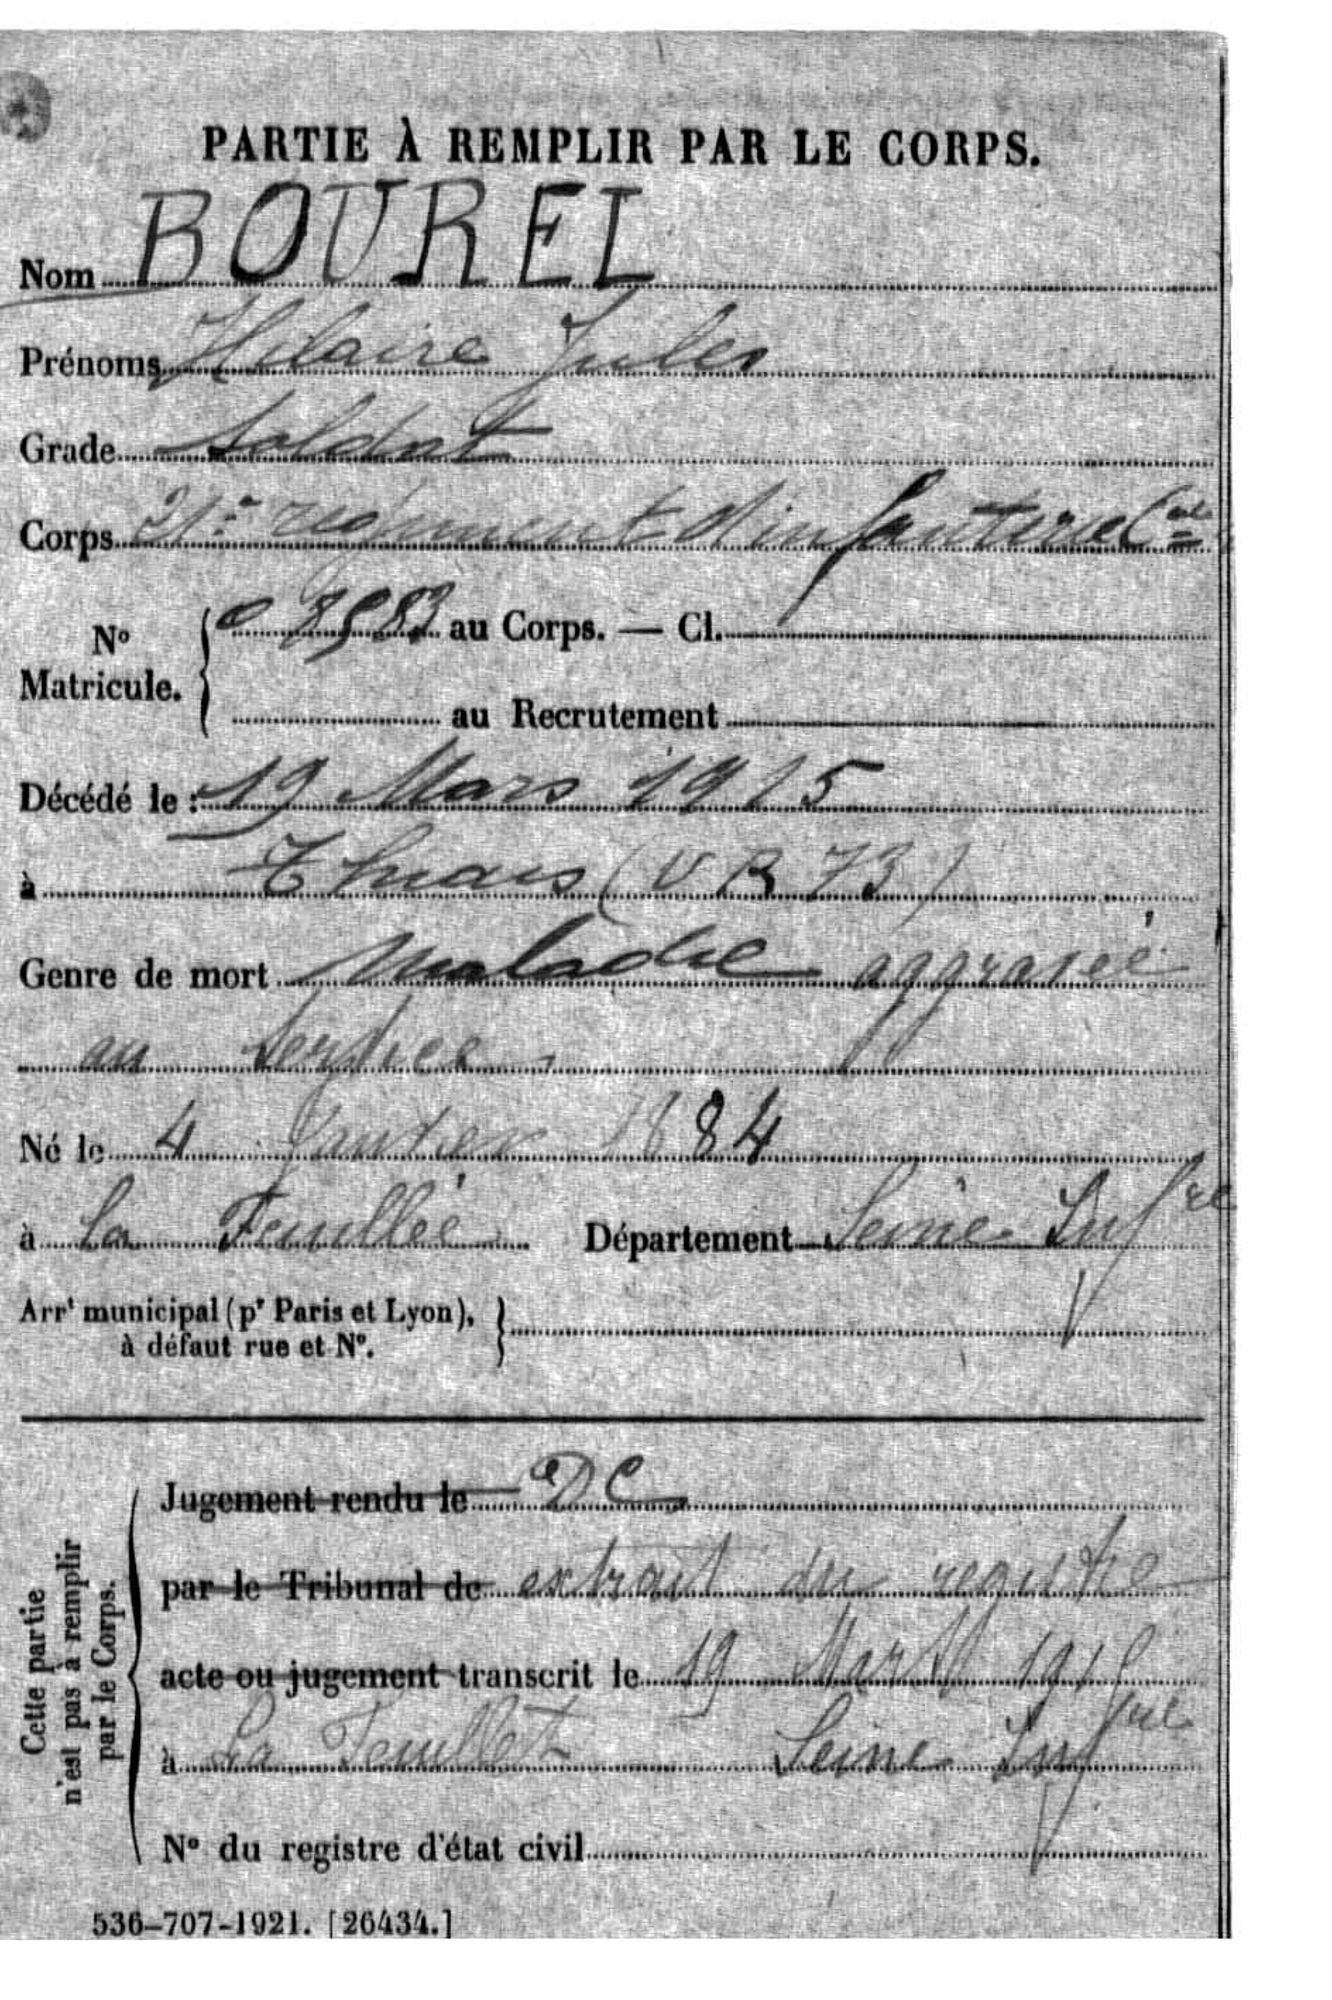 PARTIE À REMPLIR PAR LE CORPS.
Nom BOUREL
Prénoms Hilaire Jules
Grade Soldat
Corps 21e régiment d'infanterie Cale
N° Matricule. { 8583 au Corps. — Cl.
au Recrutement
Décédé le : 19 Mars 1915
à (VR 73)
Genre de mort Maladie aggravée
au service
Né le 4 Janvier 1884
à La Feuillée Département Seine Infre
Arrt municipal (pr Paris et Lyon), à défaut rue et N°. }
Cette partie n'est pas à remplir par le Corps.
Jugement rendu le DC
par le Tribunal de extrait du registre
acte ou jugement transcrit le 19 Mars 1915
à La Feuillet Seine Infre
N° du registre d'état civil
536-707-1921. [26434.]